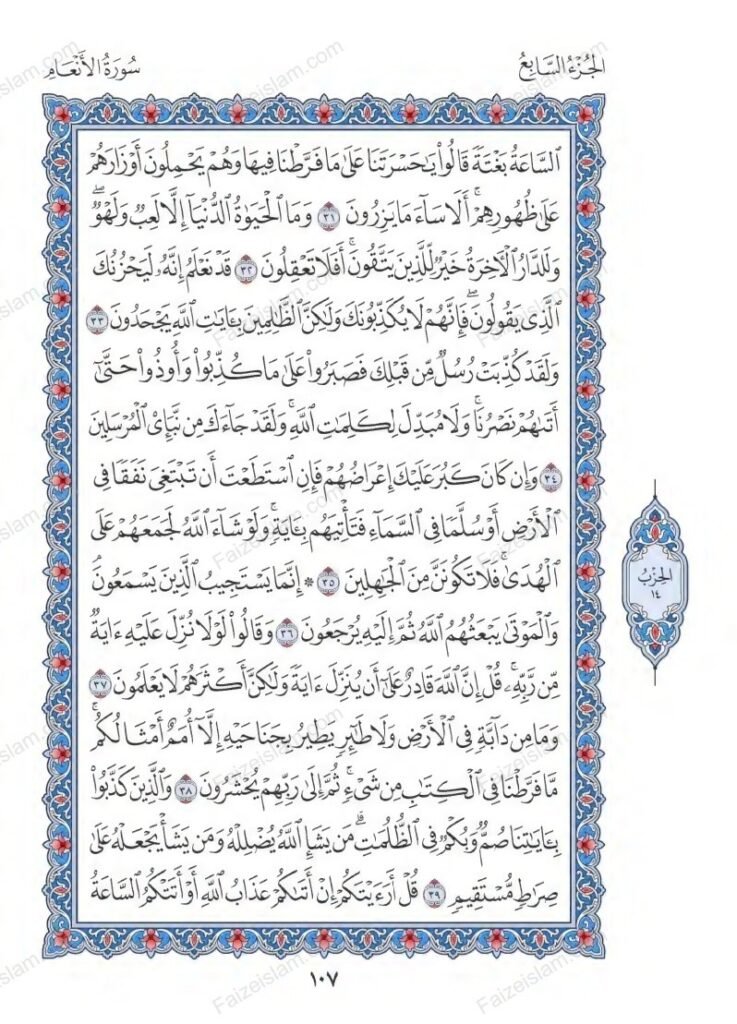 الجُزْءُ السَّابِعُ
سُورَةُ الأَنْعَامِ
السَّاعَةُ بَغْتَةً قَالُوا۟ يَٰحَسْرَتَنَا عَلَىٰ مَا فَرَّطْنَا فِيهَا وَهُمْ يَحْمِلُونَ أَوْزَارَهُمْ
عَلَىٰ ظُهُورِهِمْۚ أَلَا سَآءَ مَا يَزِرُونَ ٣١ وَمَا الْحَيَوٰةُ الدُّنْيَآ إِلَّا لَعِبٌ وَلَهْوٌۖ
وَلَلدَّارُ الْءَاخِرَةُ خَيْرٌ لِّلَّذِينَ يَتَّقُونَۚ أَفَلَا تَعْقِلُونَ ٣٢ قَدْ نَعْلَمُ إِنَّهُۥ لَيَحْزُنُكَ
الَّذِى يَقُولُونَۖ فَإِنَّهُمْ لَا يُكَذِّبُونَكَ وَلَٰكِنَّ الظَّٰلِمِينَ بِـَٔايَٰتِ اللَّهِ يَجْحَدُونَ ٣٣
وَلَقَدْ كُذِّبَتْ رُسُلٌ مِّن قَبْلِكَ فَصَبَرُوا۟ عَلَىٰ مَا كُذِّبُوا۟ وَأُوذُوا۟ حَتَّىٰٓ
أَتَىٰهُمْ نَصْرُنَاۚ وَلَا مُبَدِّلَ لِكَلِمَٰتِ اللَّهِۚ وَلَقَدْ جَآءَكَ مِن نَّبَإِى۟ الْمُرْسَلِينَ
٣٤ وَإِن كَانَ كَبُرَ عَلَيْكَ إِعْرَاضُهُمْ فَإِنِ اسْتَطَعْتَ أَن تَبْتَغِىَ نَفَقًا فِى
الْأَرْضِ أَوْ سُلَّمًا فِى السَّمَآءِ فَتَأْتِيَهُم بِـَٔايَةٍۚ وَلَوْ شَآءَ اللَّهُ لَجَمَعَهُمْ عَلَى
الْهُدَىٰۚ فَلَا تَكُونَنَّ مِنَ الْجَٰهِلِينَ ٣٥ ۞ إِنَّمَا يَسْتَجِيبُ الَّذِينَ يَسْمَعُونَۘ
وَالْمَوْتَىٰ يَبْعَثُهُمُ اللَّهُ ثُمَّ إِلَيْهِ يُرْجَعُونَ ٣٦ وَقَالُوا۟ لَوْلَا نُزِّلَ عَلَيْهِ ءَايَةٌ
مِّن رَّبِّهِۦۚ قُلْ إِنَّ اللَّهَ قَادِرٌ عَلَىٰٓ أَن يُنَزِّلَ ءَايَةً وَلَٰكِنَّ أَكْثَرَهُمْ لَا يَعْلَمُونَ ٣٧
وَمَا مِن دَآبَّةٍ فِى الْأَرْضِ وَلَا طَٰٓئِرٍ يَطِيرُ بِجَنَاحَيْهِ إِلَّآ أُمَمٌ أَمْثَالُكُمۚ
مَّا فَرَّطْنَا فِى الْكِتَٰبِ مِن شَىْءٍۚ ثُمَّ إِلَىٰ رَبِّهِمْ يُحْشَرُونَ ٣٨ وَالَّذِينَ كَذَّبُوا۟
بِـَٔايَٰتِنَا صُمٌّ وَبُكْمٌ فِى الظُّلُمَٰتِۗ مَن يَشَإِ اللَّهُ يُضْلِلْهُ وَمَن يَشَأْ يَجْعَلْهُ عَلَىٰ
صِرَٰطٍ مُّسْتَقِيمٍ ٣٩ قُلْ أَرَءَيْتَكُمْ إِنْ أَتَىٰكُمْ عَذَابُ اللَّهِ أَوْ أَتَتْكُمُ السَّاعَةُ
الحِزْبُ
١٤
١٠٧
Faizeislam.com